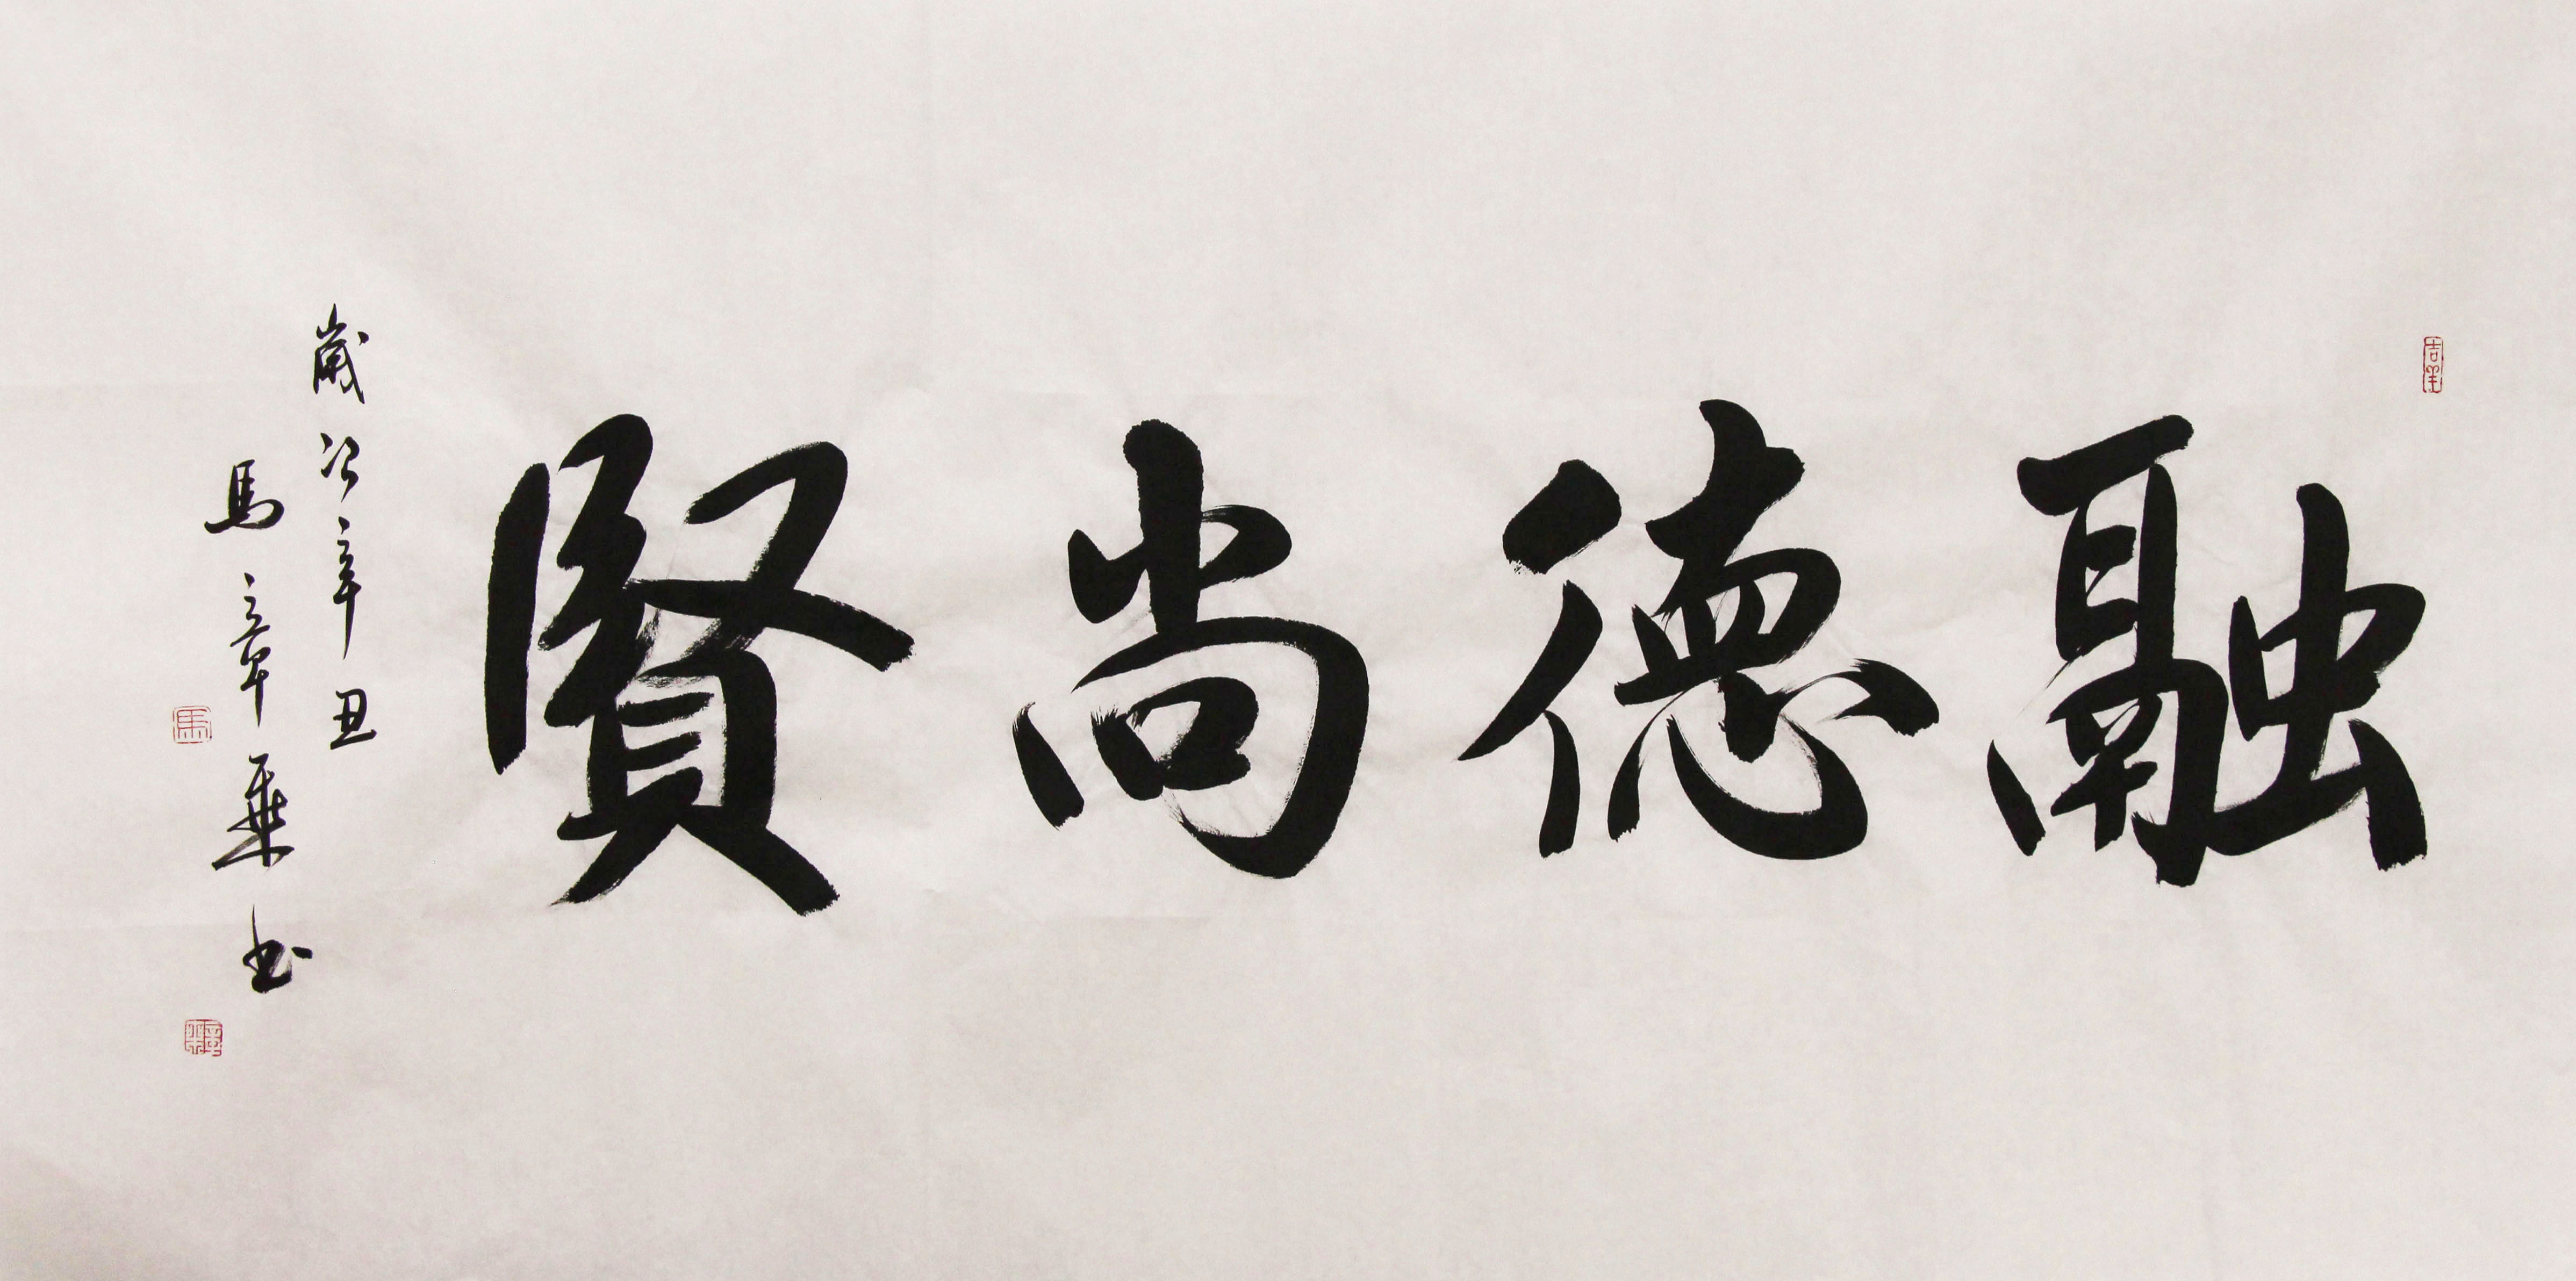 融德尚賢
歲次辛丑
馬章乘書
吉羊
馬